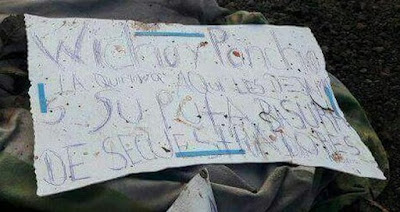 Wicho y Poncho
LA QUINTA AQUI LES DEJAN
SU PUTA BASURA
DE SECUESTRADORES